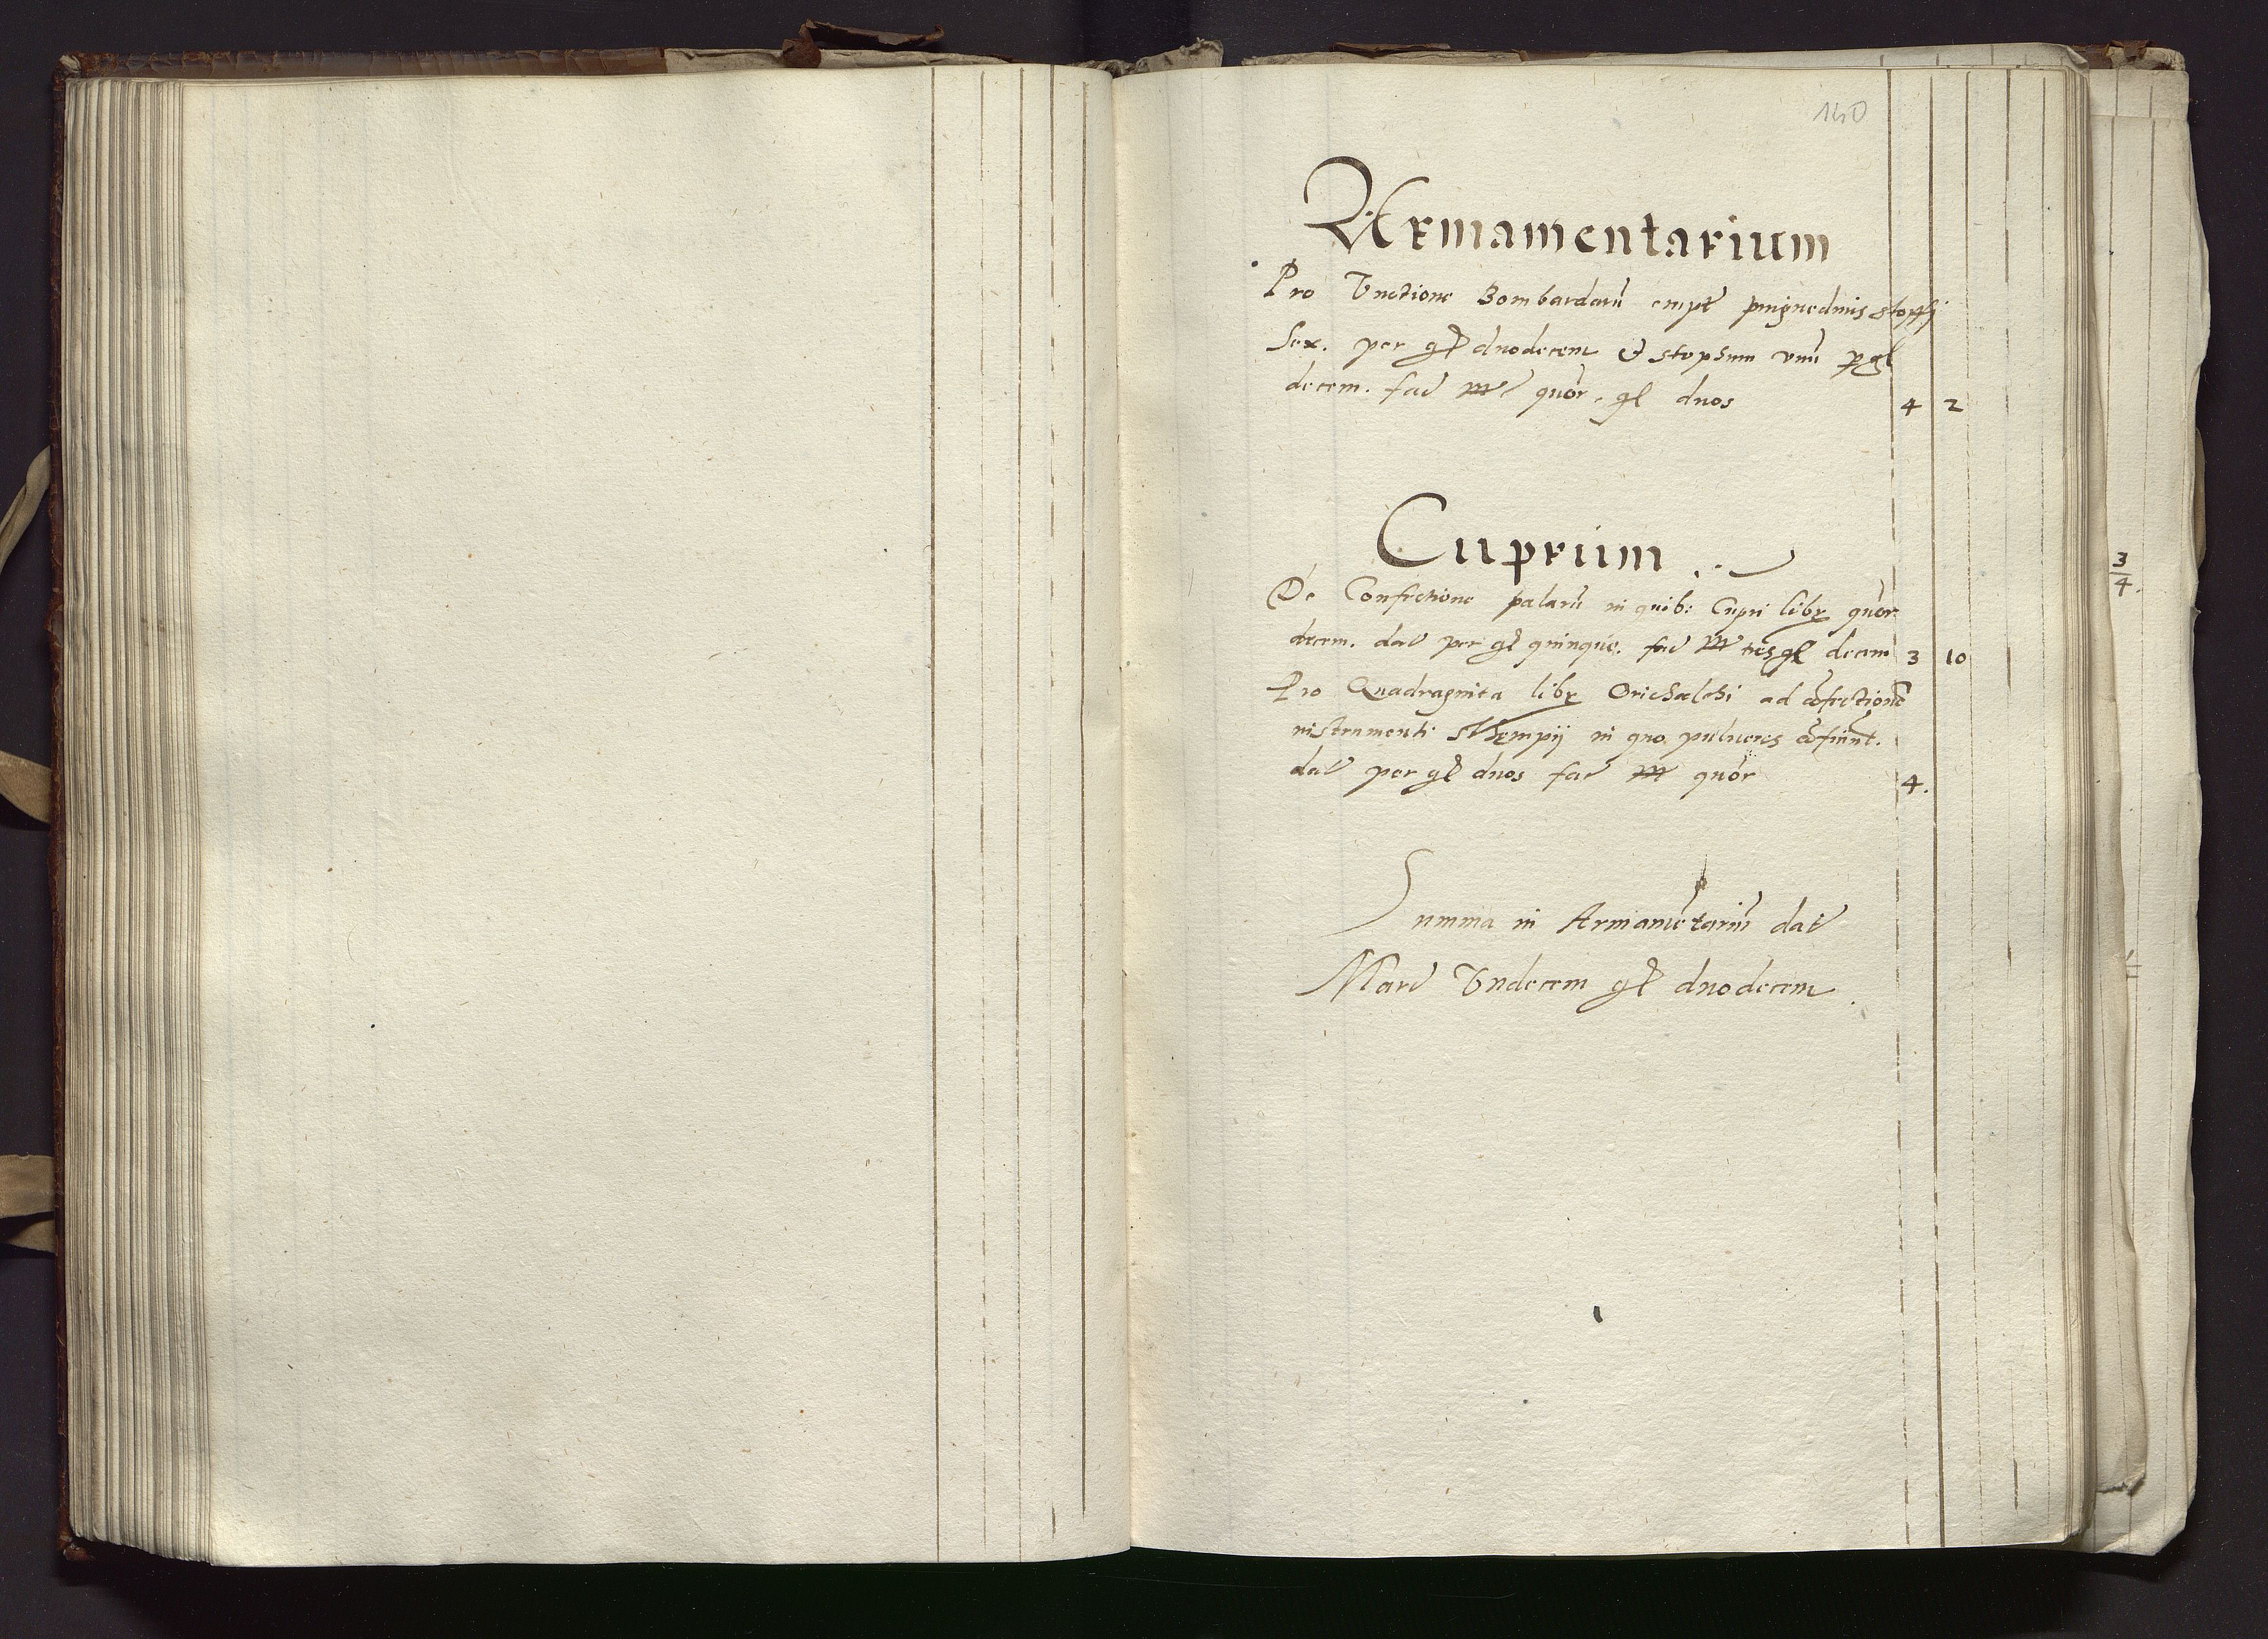 140
Armamentarium
Pro Vnctione Bombardarũ empt pinguedinis stopsj
Sex. per gł duodecem et stopsum vnũ p gł
decem. fac m̃c quõr. gł duos 4 2
Cuprium
De Confectione palarũ in quib: Cupri libr quõr
decem. dat per gł quinque. fac m̃ tres gł decem 3 10
Pro Quadraginta libr Orichalchi ad cõfectionẽ
instrumenti Stempij in quo pulueres cõfiũnt.
dat per gł duos fac m̃ quõr 4.
Summa in Armamẽtariũ dat
Marc Vndecem gł duodecem
3
4.